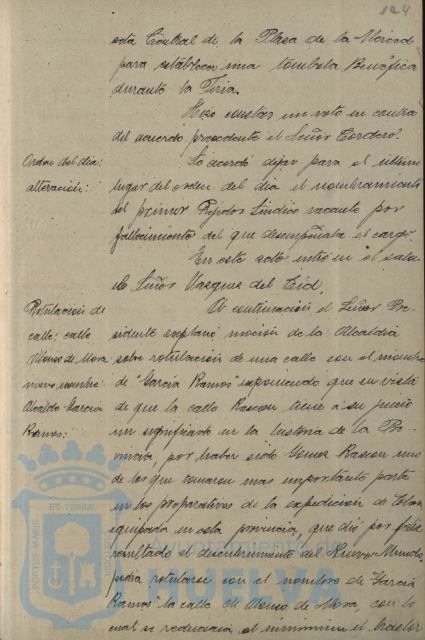 124
seta Central de la Plaza de la Merced
para establecer una tombola Benéfica
durante la Feria.
Hizo constar un voto en contra
del acuerdo precedente el Señor Cordero.
Orden del dia:
alteración:
Se acordo dejar para el ultimo
lugar del orden del dia el nombramiento
del primer Regidor Sindico vacante por
fallecimiento del que desempeñaba el cargo.
En este acto entró en el salon
el Señor Vazquez del Cid,
Rotulacion de
calle: calle
Alonso de Mora
nuevo nombre:
Alcalde Garcia
Ramos:
A continuacion el Señor Pre-
sidente explanó mocion de la Alcaldia
sobre rotulación de una calle con el nombre
de "Garcia Ramos" exponiendo que en vista
de que la calle Rascon tiene a su juicio
un significado en la historia de la Pro-
vincia por haber sido Gomez Rascon uno
de los que tomaron mas importante parte
en los preparativos de la expedicion de Colon
equipada en esta provincia, que dió por feliz
resultado el descubrimiento del Nuevo Mundo,
podia rotularse con el nombre de "Garcia
Ramos" la calle de Alonso de Mora, con lo
cual se reduciria al minimum el
PORTUS MARIS ET TERRAE CUSTODIA
Ayuntamiento de
HUELVA